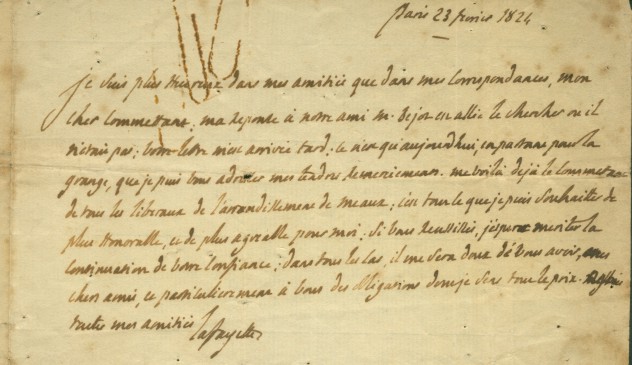 Paris 23 fevrier 1824
je suis plus heureux dans mes amitiés que dans mes correspondances, mon
cher Commettant. ma reponse à notre ami m. est allée le chercher où il
n'etait pas; votre lettre m'est arrivée tard; ce n'est qu'aujourdhui, en partant pour la
grange, que je puis vous adresser mes tendres remerciemens. me voilà déjà le
de tous les liberaux de l'arrondissement de meaux; c'est tout ce que je puis souhaiter de
plus honorable, et de plus agreable pour moi; Si vous reussissés, j'espere meriter la
continuation de votre Confiance; dans tous les cas, il me sera doux de vous avoir, mes
chers amis, et particulierement à vous des obligations dont je sens tout le prix.
toutes mes amitiés
Lafayette